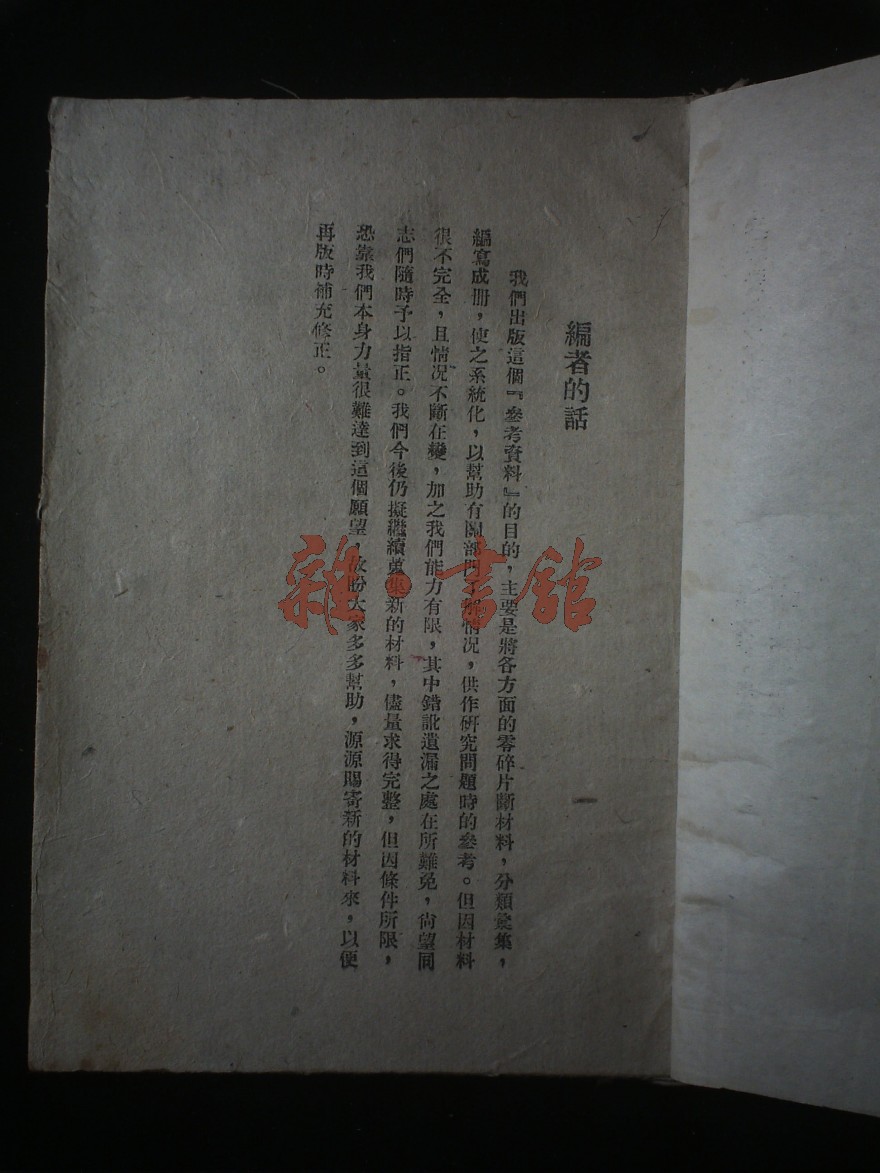 編者的話
我們出版這個『參考資料』的目的，主要是將各方面的零碎片斷材料，分類彙集，
編寫成册，使之系統化，以幫助有關部門了解情况，供作研究問題時的參考。但因材料
很不完全，且情况不斷在變，加之我們能力有限，其中錯訛遺漏之處在所難免，尙望同
志們隨時予以指正。我們今後仍擬繼續蒐集新的材料，儘量求得完整，但因條件所限，
恐靠我們本身力量很難達到這個願望，故盼大家多多幫助，源源賜寄新的材料來，以便
再版時補充修正。
一
雜·書館